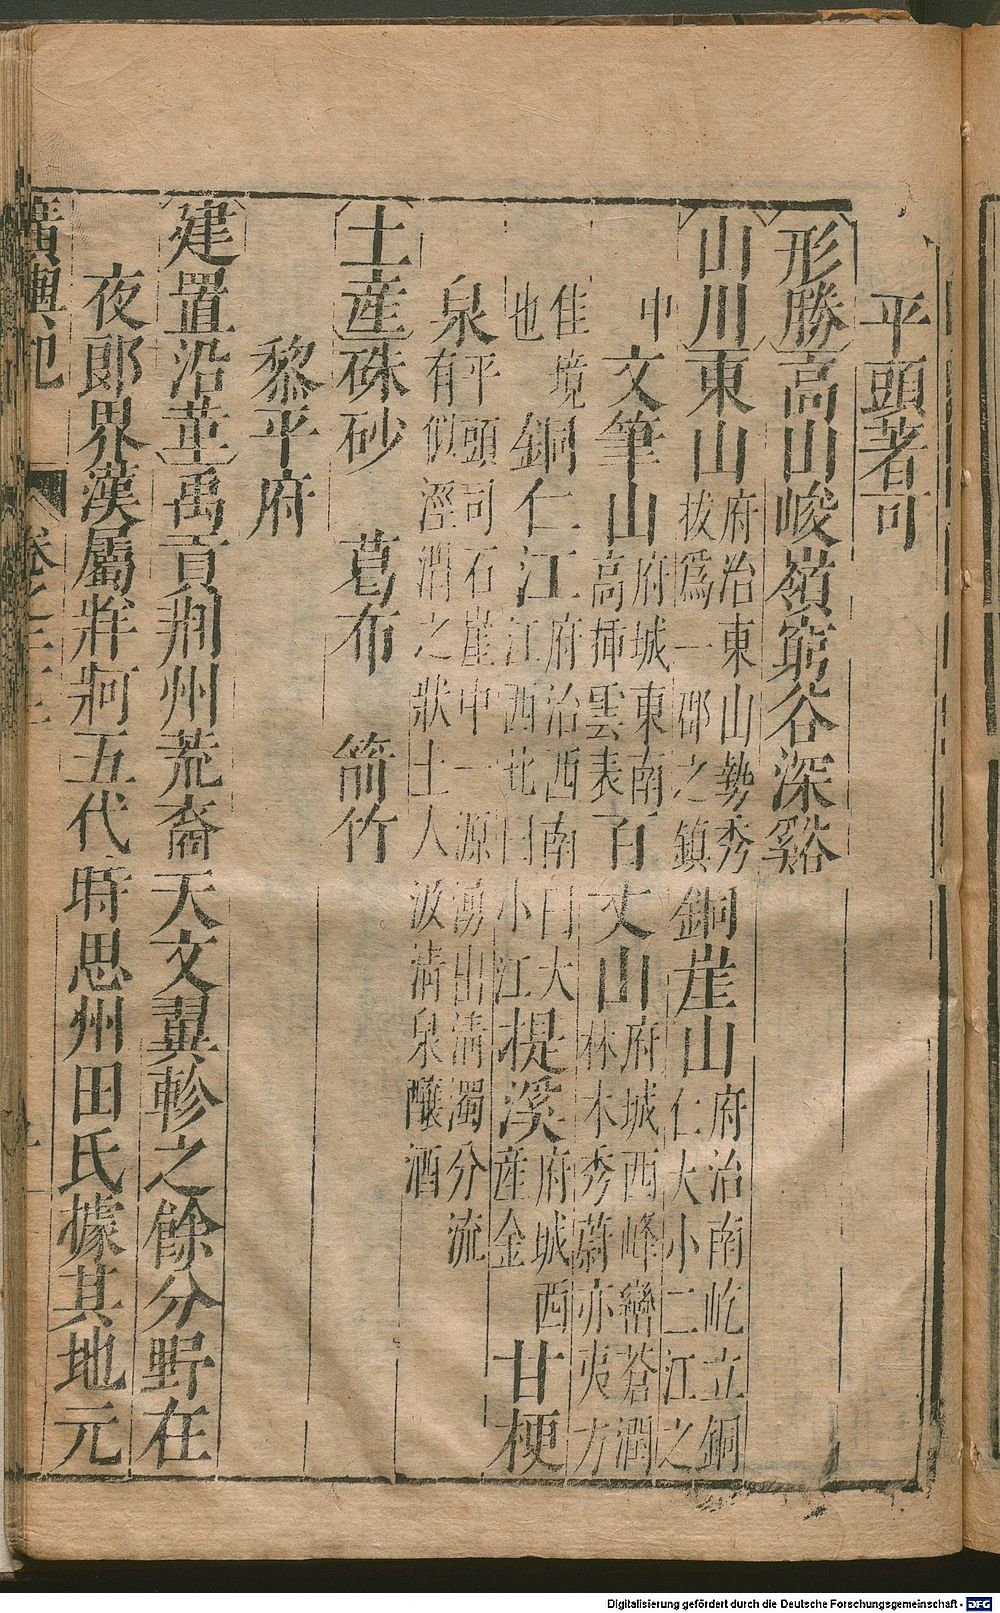 平頭著可
形勝高山峻嶺窮谷深谿
山川東山府治東山勢秀拔爲一郡之鎮銅崖山府治南屹立銅仁大小二江之
中文筆山府城東南高揷雲表百丈山府城西峰巒蒼潤林木秀蔚亦夷方
佳境也銅仁江府治西南曰大江西北曰小江提溪府城西產金甘梗
泉平頭司石崖中一源湧出清濁分流有似涇渭之狀土人汲清泉釀酒
土產硃砂 葛布 箭竹
黎平府
建置沿革禹貢荆州荒裔天文翼軫之餘分野在
夜郎界漢屬牂牁五代時思州田氏據其地元
廣輿記
Digitalisierung gefördert durch die Deutsche Forschungsgemeinschaft - DFG